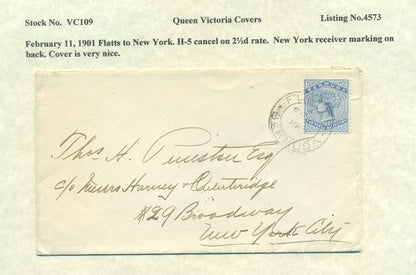 Stock No. VC109 Queen Victoria Covers Listing No.4573
February 11, 1901 Flatts to New York. H-5 cancel on 2½d rate. New York receiver marking on
back. Cover is very nice.
BERMUDA
Thos H. Peniston Esq
c/o Messrs Harvey & Outerbridge
#29 Broadway
New York City